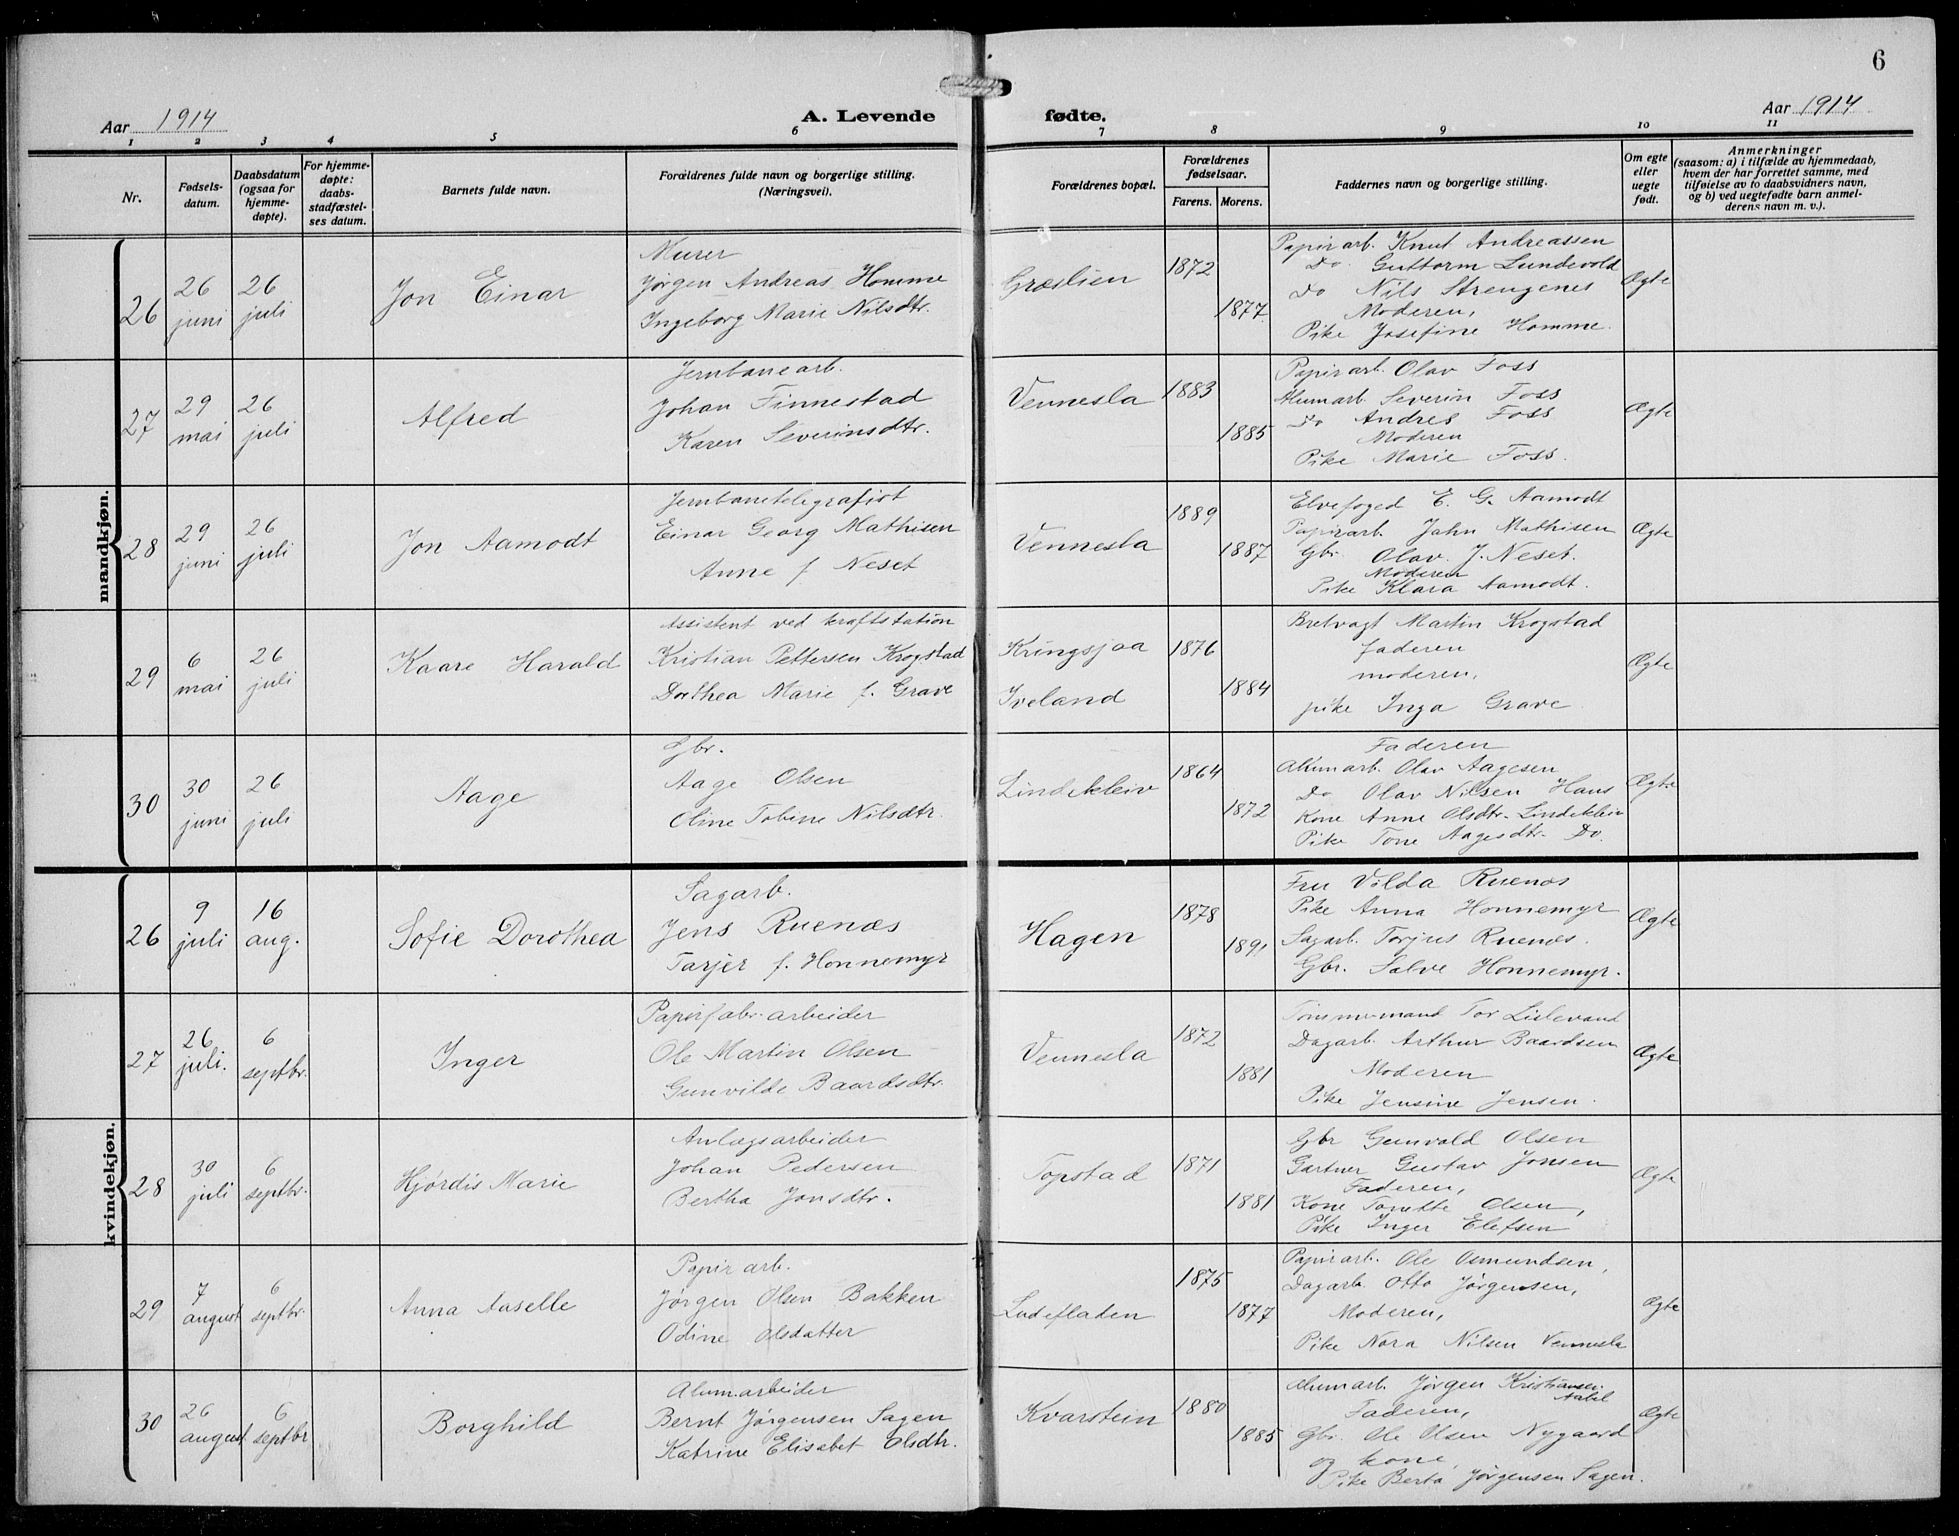 6
Aar 1914
A. Levende fødte.
Aar 1914
1 2 3 4 5 6 7 8 9 10 11
Nr.
Fødsels-
datum.
Daabsdatum
(ogsaa for
hjemme-
døpte).
For hjemme-
døpte:
daabs-
stadfæstel-
ses datum.
Barnets fulde navn.
Forældrenes fulde navn og borgerlige stilling.
(Næringsvei).
Forældrenes bopæl.
Forældrenes
fødselsaar.
Farens. Morens.
Faddernes navn og borgerlige stilling.
Om egte
eller
uegte
født.
Anmerkninger
(saasom: a) i tilfælde av hjemmedaab,
hvem der har forrettet samme, med
tilføielse av to daabsvidners navn,
og b) ved uegtefødte barn anmel-
derens navn m. v.).
mandkjøn.
26
26
juni
26
juli
Jon Einar
Murer
Jørgen Andreas Homme
Ingeborg Marie Nilsdtr.
Græslien
1872
1877
Papirarb. Knut Andreassen
Do Guttorm Lundevold
Do Nils Strengenes
Moderen,
Pike Josefine Homme.
Ægte
27
29
mai
26
juli
Alfred
Jernbanearb.
Johan Finnestad
Karen Severinsdtr.
Vennesla
1883
1885
Papirarb. Olav Foss
Alumarb Severin Foss
Do Andres Foss
Moderen
Pike Marie Foss.
Ægte
28
29
juni
26
juli
Jon Aamodt
Jernbanetelegrafist
Einar Georg Mathisen
Anne f. Neset
Vennesla
1889
1887
Elvefoged E. G. Aamodt
Papirarb. Jahn Mathisen
Gbr. Olav J. Neset.
Moderen
Pike Klara Aamodt.
Ægte
29
6
mai
26
juli
Kaare Harald
Assistent ved kraftstation
Kristian Pettersen Krogstad
Dorthea Marie f. Grave
Kringsjaa
Iveland
1876
1884
Bretvagt Martin Krogstad
faderen
moderen,
pike Inga Grave
Ægte
30
30
juni
26
juli
Aage
Gbr.
Aage Olsen
Oline Tobine Nilsdtr.
Lindekleiv
1864
1872
Faderen
Alumarb. Olav Aagesen
Do Olav Nilsen Haus
Kone Anne Olsdtr. Lindekleiv
Pike Tone Aagesdtr. Do.
Ægte
kvindekjøn.
26
9
juli
16
aug.
Sofie Dorothea
Sagarb.
Jens Ruenæs
Tarjer f. Honnemyr
Hagen
1878
1891
Fru Vilda Ruenæs
Pike Anna Honnemyr
Sagarb. Torjus Ruenæs.
Gbr. Salve Honnemyr.
Ægte
27
26
juli.
6
septbr.
Inger
Papirfabr. arbeider
Ole Martin Olsen
Gunvilde Baardsdtr.
Vennesla
1872
1881
Tømmermand Tor Lislevand
Dagarb. Arthur Baardsen
Moderen
Pike Jensine Jensen.
Ægte
28
30
juli
6
septbr.
Hjørdis Marie
Anlægsarbeider
Johan Pedersen
Bertha Jonsdtr.
Topstad
1871
1881
Gbr Gunvald Olsen
Gartner Gustav Jonsen
Faderen,
Kone Tonette Olsen,
Pike Inger Elefsen
Ægte
29
7
august
6
septbr.
Anna Aaselle
Papirarb.
Jørgen Olsen Bakken
Odine Olsdatter
Ludefladen
1875
1877
Papirarb. Ole Osmundsen,
Dagarb. Otto Jørgensen,
Moderen,
Pike Nora Nilsen Vennesla
Ægte
30
26
august
6
septbr
Borghild
Alum.arbeider
Bernt Jørgensen Sagen
Katrine Elisabet Olsdtr.
Kvarstein
1880
1885
Alumarb. Jørgen Kristiansen
Faderen,
Gbr. Ole Olsen Nygaard
og kone,
Pike Berta Jørgensen Sagen.
Ægte